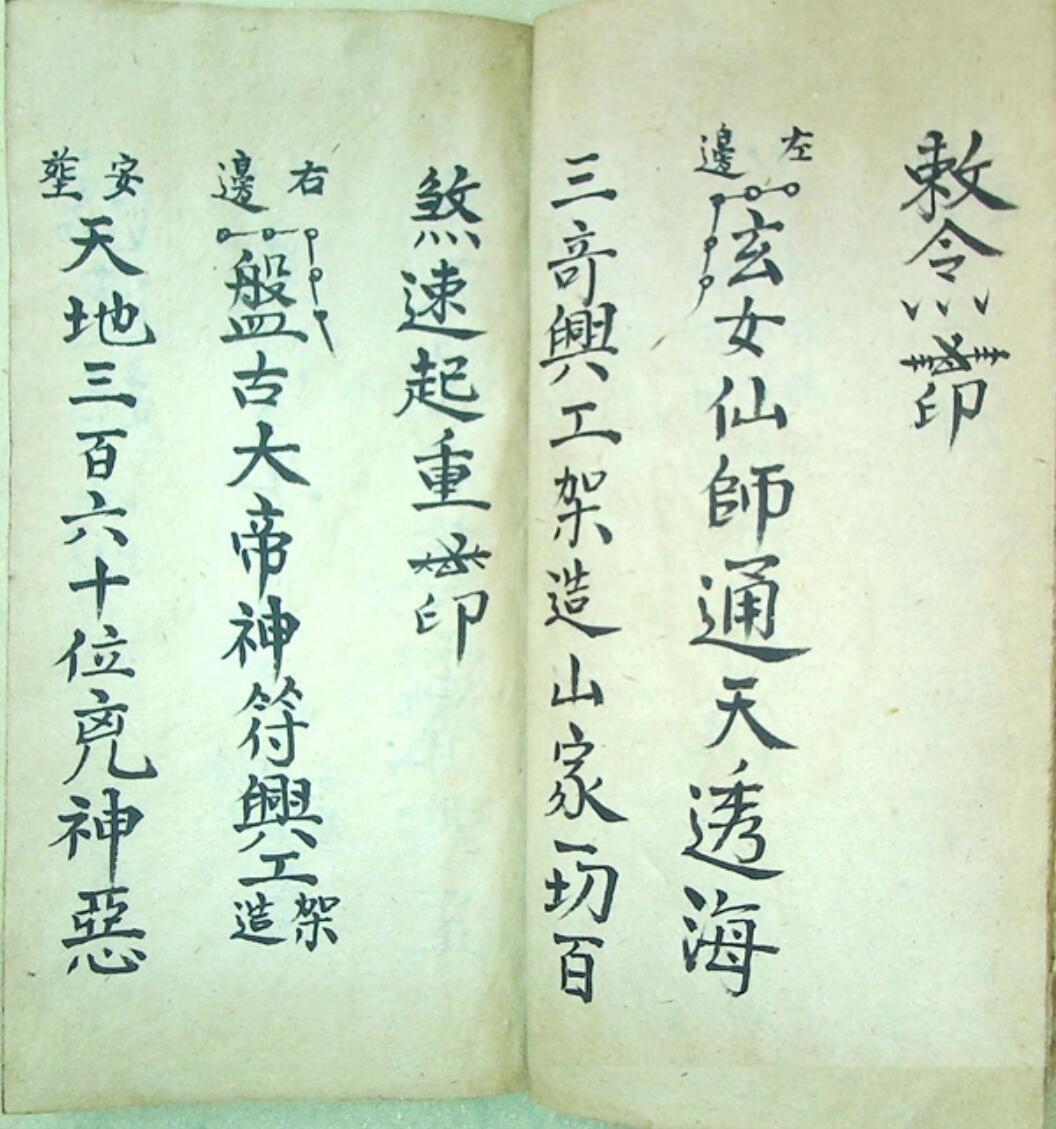 敕令印
左邊玄女仙師通天透海
三奇興工架造山家一切百
煞速起重印
右邊盤古大帝神符興工架造
安塟天地三百六十位兇神惡